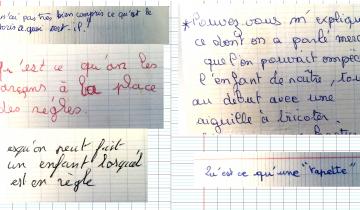 n'ai pas très bien compris ce qu'est le
doris à quoi sert-il?
Qu'est ce qu'on les
garçons à la place
des règles.
esqu'on peut fait
un enfant lorsqu'el
est en règle
*Pouvez vous m'expliqu
ce dont on a parlé merc
que l'on pouvait empec
l'enfant de naître, tou
au début avec une
aiguille à tricoter.
Qu'est ce qu'une "tapette"